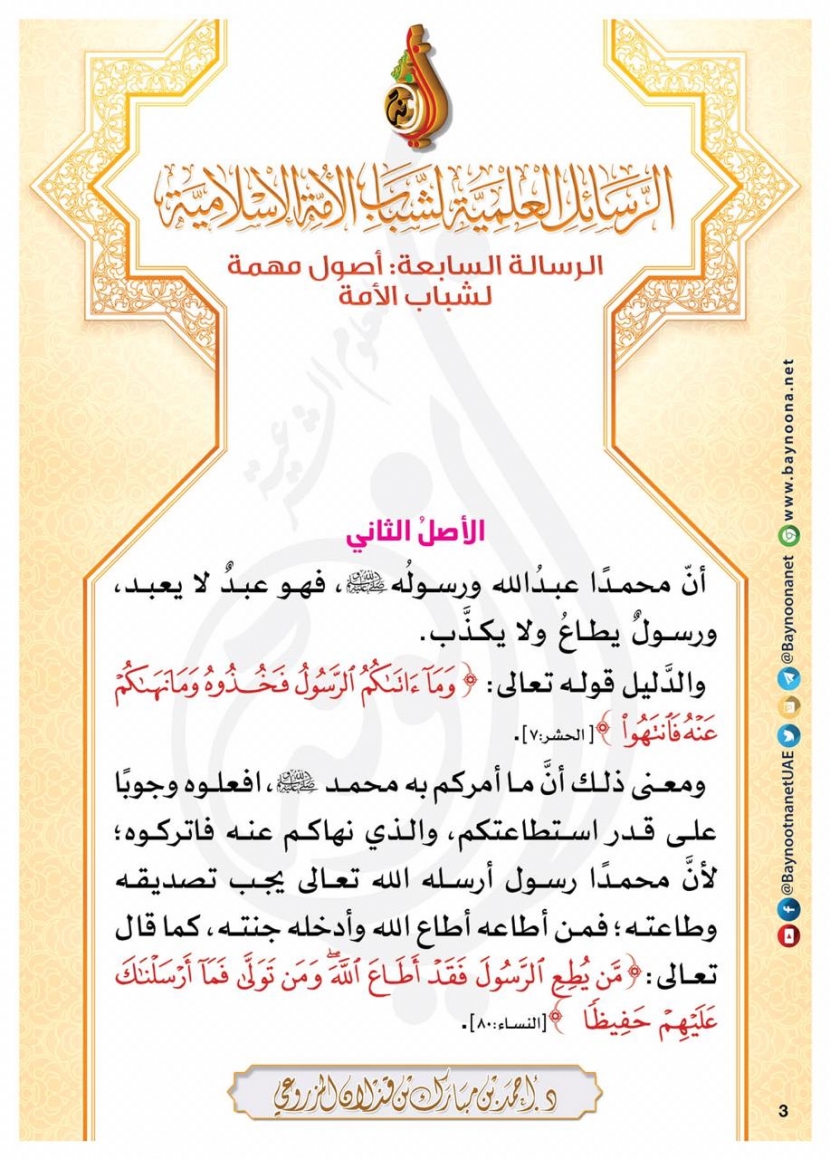 الرسائل العلمية لشباب الأمة الإسلامية
الرسالة السابعة: أصول مهمة
لشباب الأمة
الأصلُ الثاني
أنّ محمدًا عبدُالله ورسولُه ﷺ، فهو عبدٌ لا يعبد،
ورسولٌ يطاعُ ولا يكذَّب.
والدَّليل قوله تعالى: ﴿ وَمَآ ءَاتَىٰكُمُ ٱلرَّسُولُ فَخُذُوهُ وَمَانَهَىٰكُمْ
عَنْهُ فَٱنتَهُوا۟ ﴾ [الحشر:٧].
ومعنى ذلك أنَّ ما أمركم به محمد ﷺ، افعلوه وجوبًا
على قدر استطاعتكم، والذي نهاكم عنه فاتركوه؛
لأنَّ محمدًا رسول أرسله الله تعالى يجب تصديقه
وطاعته؛ فمن أطاعه أطاع الله وأدخله جنته، كما قال
تعالى: ﴿مَّن يُطِعِ ٱلرَّسُولَ فَقَدْ أَطَاعَ ٱللَّهَۖ وَمَن تَوَلَّىٰ فَمَآ أَرْسَلْنَٰكَ
عَلَيْهِمْ حَفِيظًا ﴾ [النساء:٨٠].
د. أحمد بن مبارك بن قذلان المزروعي
3
@BaynootnanetUAE @Baynoonanet www.baynoona.net
للعلوم الشرعية